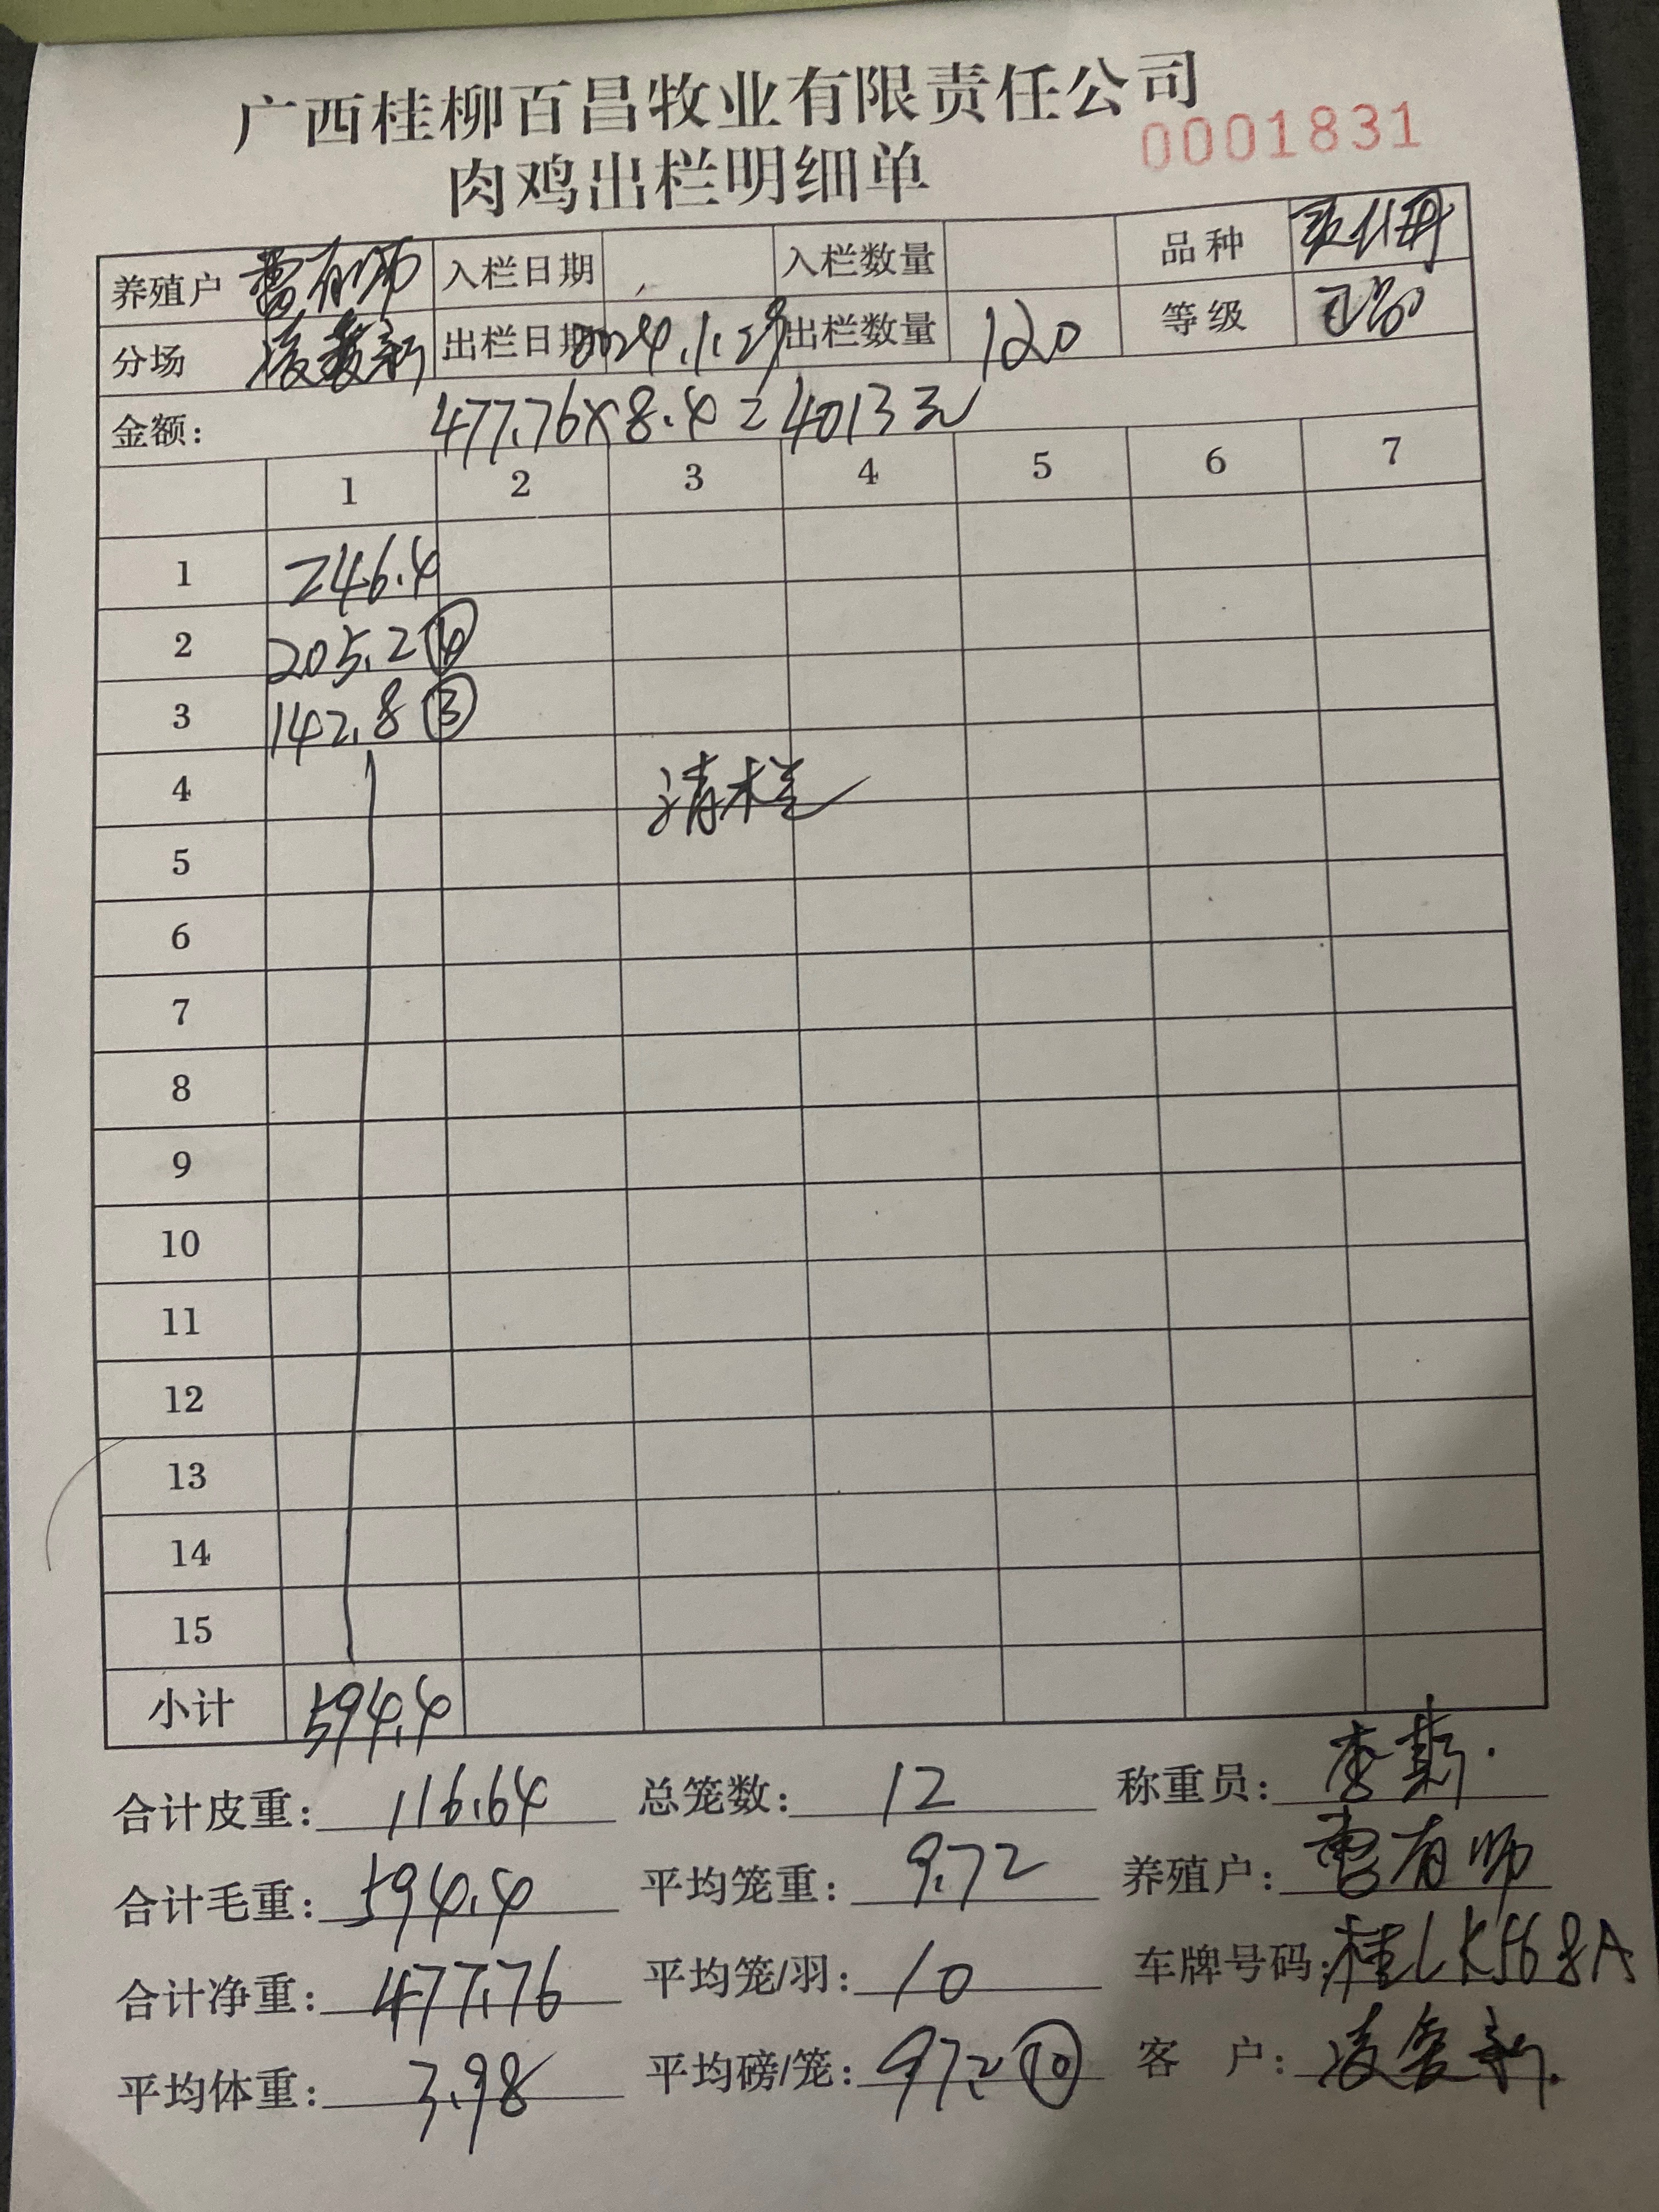 广西桂柳百昌牧业有限责任公司
0001831
肉鸡出栏明细单
养殖户 曹有师 入栏日期 入栏数量 品种
分场 出栏日期 2024.1.29 出栏数量 120 等级
金额: 477.76×8.4=4013元
1 2 3 4 5 6 7
1 246.4
2 205.2 ④
3 142.8 ③
4 清栏
5
6
7
8
9
10
11
12
13
14
15
小计 594.4
合计皮重: 116.64 总笼数: 12 称重员: 李
合计毛重: 594.4 平均笼重: 9.72 养殖户: 曹有师
合计净重: 477.76 平均笼/羽: 10 车牌号码: 桂LK568A
平均体重: 3.98 平均磅/笼: 97.2 ⑩ 客户: 凌